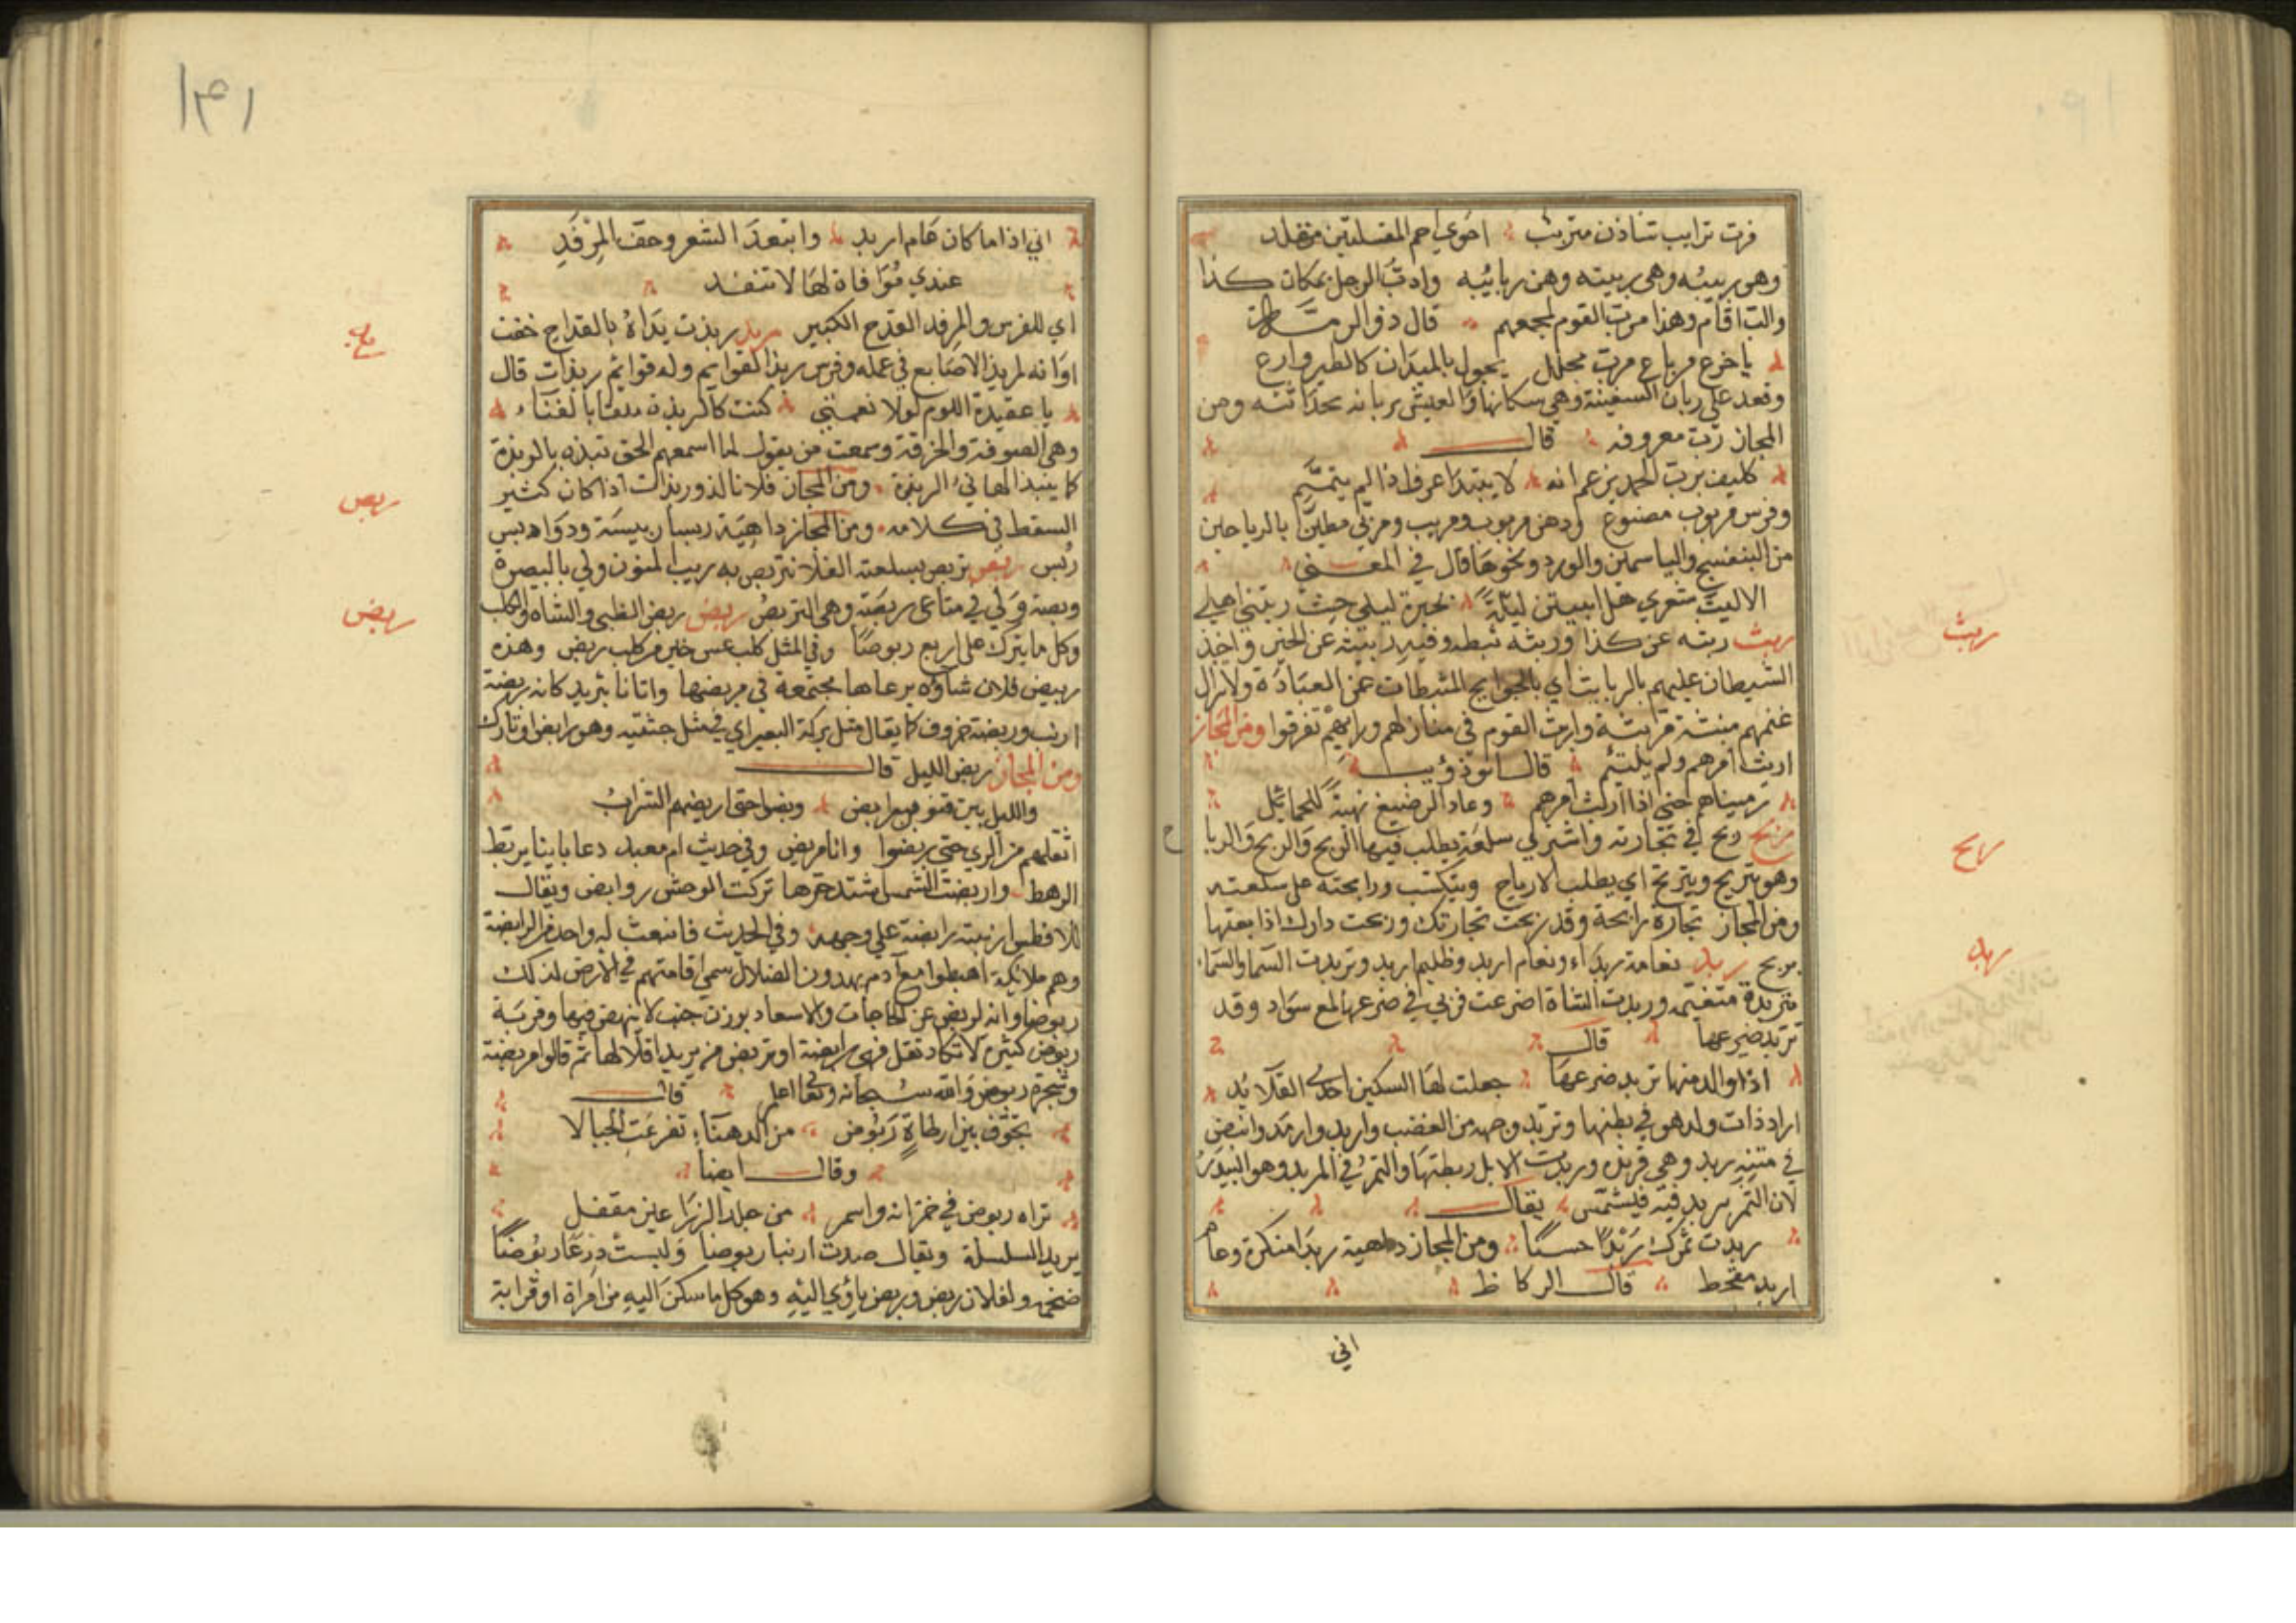 فرت ترايب شاذن متربب احوي احم المقلتين مقلد
وهو ربيبه وهي ربيبته وهن ربايبه واربّ الرجل بمكان كذا
والبّ اقام وهذا مربّ القوم لمجمعهم قال ذو الرمة
باجرع مرباع مرب محلل يجول بالميدان كالطير وارع
وقعد على ربان السفينة وهي سكانها والعيش بربانه بحداثته ومن
المجاز ربّ معروفه قال
كليف برب الحمد يزعم انه لا يبتدا عرف اذا لم يتمم
وفرس مربوب مصنوع ودهن مربوب ومربب ومربي مطيب بالرياحين
من البنفسج والياسمين والورد ونحوها قال في المعني
الا ليت شعري هل ابيتن ليلة بحرة ليلي حيث ربتني اهلي
ربث ربثه عن كذا وربثه ثبطه وفيه ربيثة عن الخير واخذ
الشيطان عليهم بالربايث اي بالحوايج المثبطات عن العبادة ولا تزال
غنمهم منبثة مربثة واربث القوم في منازلهم ورايهم تفرقوا ومن المجاز
اربث امرهم ولم يلتئم قال ابو ذويب
رميناهم حتى اذا اربث امرهم وعاد الرصيع نهية للحمائل
ربح ربح في تجارته واشتري سلعة يطلب فيها الربح والربح والربا
وهو يتربح ويترنح اي يطلب الارباح ويتكسب ورابحته على سلعته
ومن المجاز تجارة رابحة وقد ربحت تجارتك وربحت دارك اذا بعتها
بربح ربد نعامة ربداء ونعام اربد وظليم اربد وتربدت السما والسماء
متربدة متغيمة وربدت الشاة اضرعت فربي في ضرعها لمع سواد وقد
تربد ضرعها قال
اذا والد منها تربد ضرعها جعلت لها السكين احدي القلايد
اراد ذات ولد هو في بطنها وتربد وجهه من الغضب واربد وارمد وابيض
في متنه ربد وهي فرنده وربدت الابل ربطتها والتمر في المربد وهو البيدر
لان التمر يربد فيه فيشمس يقال
ربدت تمرك ربدا حسنا ومن المجاز داهية ربدا منكرة وعام
اربد مقحط قال الركاظ
اني
ربث
ربح
ربد
١٤١
اني اذا ما كان عام اربد وابتعد الشعر وحق المرفد
عندي موافاة لها لا تنفد
اي للفرس والمرفد القدح الكبير ربذ ربذت يداه بالقداح خفت
وانه لربذ الاصابع في عمله وفرس ربذ القوايم وله قوايم ربذات قال
يا عقيدة اللوم لولا نعمتي كنت كالربذة ملقا بالفناء
وهي الصوفة والخرقة وسمعت من يقول لما اسمعهم الحق نبذوه بالربذة
كما ينبذ الهاني الربذة ومن المجاز فلان لذو ربذات اذا كان كثير
السقط في كلامه ومن المجاز داهية ربسا ربيسة ودواه ربس
ربس ربص تربص بسلعته الغلا تتربص به ريب المنون ولي بالبصرة
ربصة ولي في متاعي ربصة وهي التربص ربض ربض الظبي والشاة والكلب
وكل ما يبرك على اربع ربوضا وفي المثل كلب عس خير من كلب ربض وهذه
ربيض فلان شاؤه برعاها مجتمعة في مربضها واتانا بثريد كانه ربضة
ارنب وربضة خروف كما يقال مثل بركة البعير اي في مثل جثته وهو رابض او بارك
ومن المجاز ربض الليل قال
والليل بين قنوين رابض وبضوا حتى اربضهم الشراب
اثقلهم من الري حتى ربضوا وانا مربض وفي حديث ام معبد دعا بانا يربض
الرهط واربضت الشمس اشتد حرها تركت الوحش روابض ويقال
للافطس ارنبته رابضة على وجهه وفي الحديث فانبعث له واحد من الرابضة
وهم ملائكة اهبطوا مع آدم يهدون الضلال سمي اقامتهم في الارض لذلك
ربوضا وانه لربض عن الحاجات والاسعاد بوزن جنب لا ينهض فيها وقربة
ربوض كثيرة لا تكاد تقل فهي رابضة او تربض من يريد اقلالها ثم قالوا مربضة
وشجرة ربوض والله سبحانه وتعالى اعلم قال
تجوف بين ارطاة ربوض من الدهنا تفرعت الجبالا
وقال ايضا
تراه ربوض في خزانه واسمر من جلد الزراعين مقفل
يريد السلسلة ويقال صدت ارنبا ربوضا ولبست درعا ربوضا
ضخمة ولفلان ربض وربض ياوي اليه وهو كل ما سكن اليه من امراة او قرابة
ربص
ربض